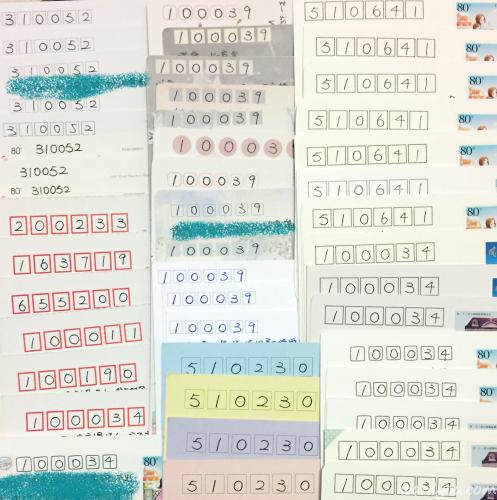 310052
310052
310052
310052
310052
80 310052
310052
80 310052
200233
163719
655200
100011
100190
100034
100034 80
100039
100039
100039
100039
100039
10003
100039
100039
100039
100039
100039
100039
510230
510230
510230
510230
510641 80
510641
510641
510641 80
510641 80
510641
510641 80
100034
100034
100034
100034
100034
100034
100034
100034